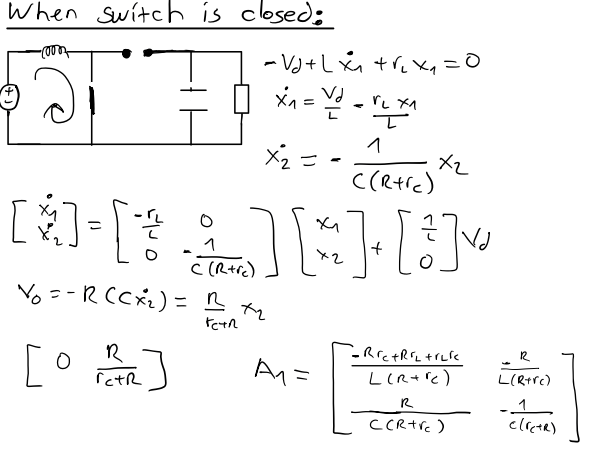 When switch is closed:
-Vd + L ẋ1 + rL x1 = 0
ẋ1 = Vd/L - rL x1/L
ẋ2 = - 1/(C(R+rc)) x2
[ẋ1; ẋ2] = [-rL/L 0; 0 -1/(C(R+rc))] [x1; x2] + [1/L; 0] Vd
Vo = -R(Cẋ2) = R/(rc+R) x2
[0 R/(rc+R)]
A1 = [(-Rrc+RrL+rLrc)/(L(R+rc)) -R/(L(R+rc)); R/(C(R+rc)) -1/(C(rc+R))]